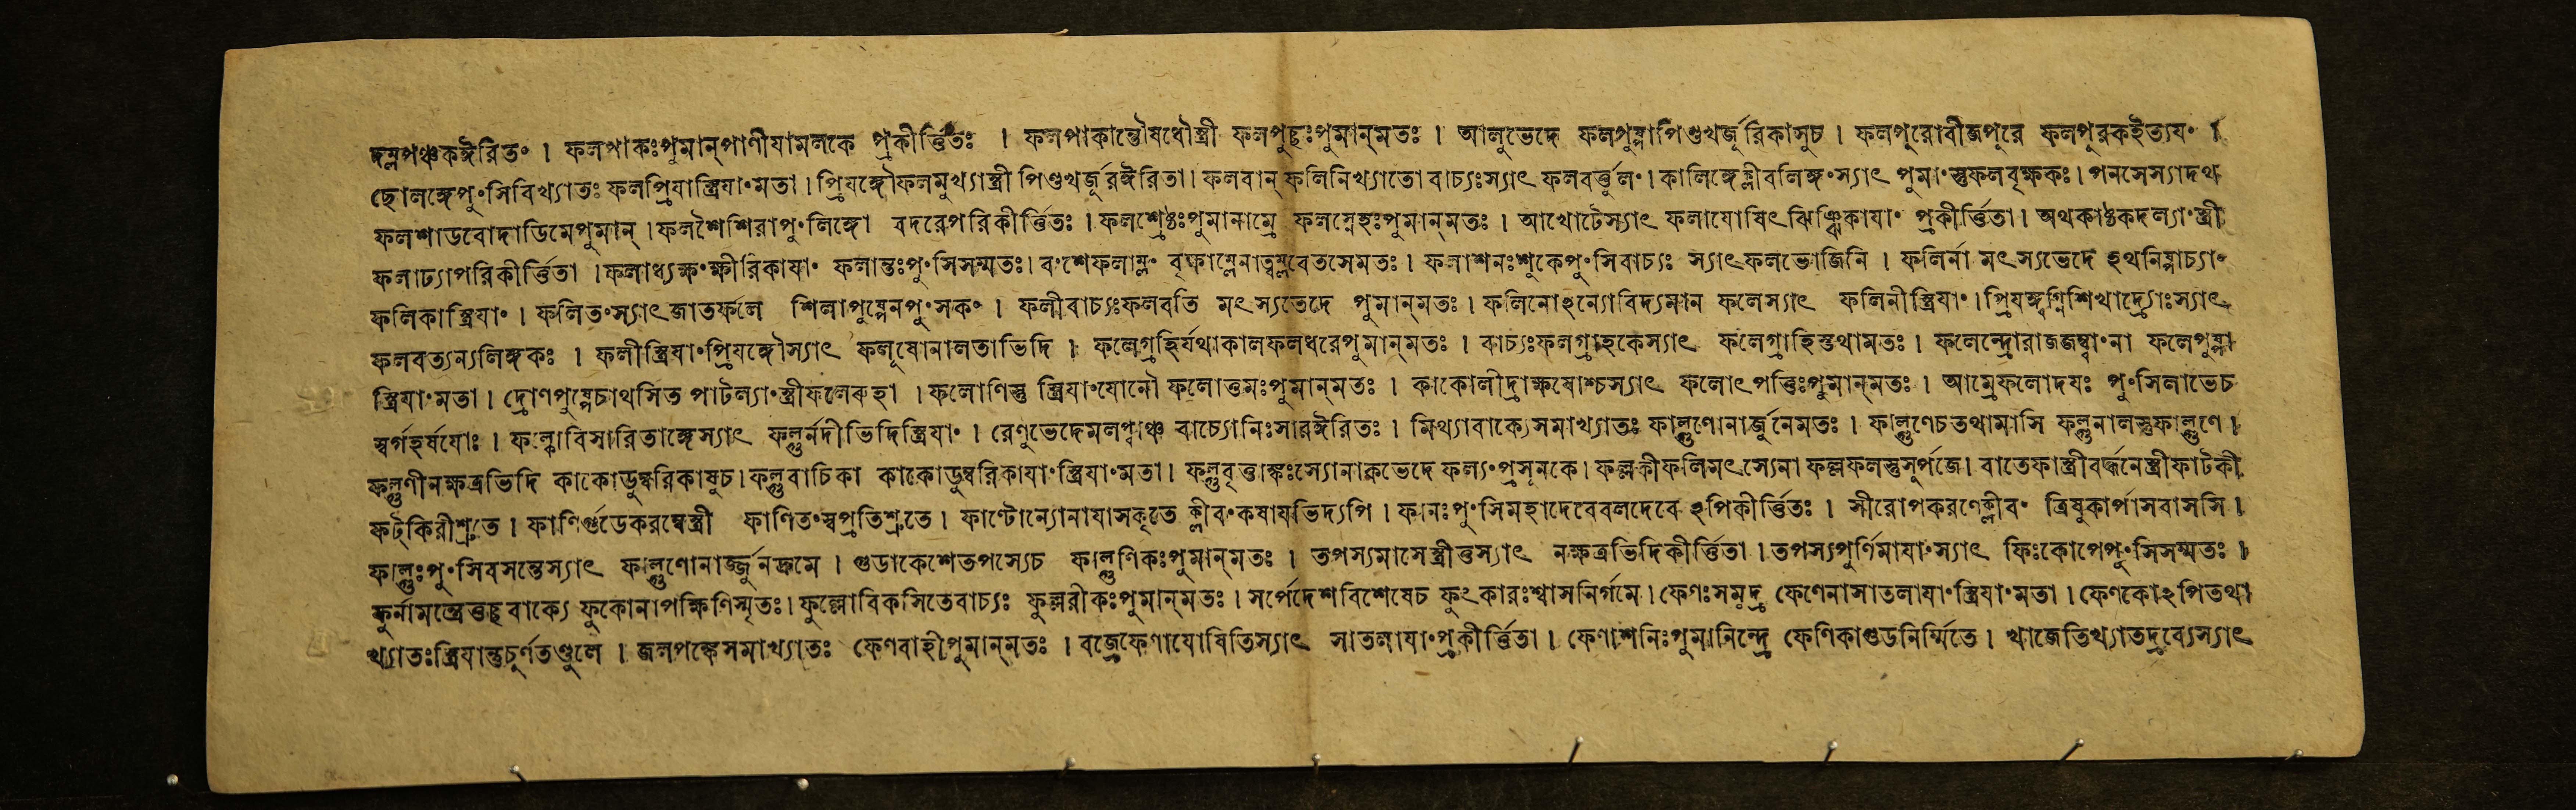 দম্লপঞ্চকঈরিতং । ফলপাকঃপুমান্পাণীযামলকে প্রকীর্ত্তিতঃ । ফলপাকান্তৌষধৌস্ত্রী ফলপুচ্ছঃপুমান্মতঃ । আলুভেদে ফলপুষ্পাপিণ্ডখর্জূরিকাসুচ । ফলপুরোবীজপুরে ফলপুরকইত্যযং ।
ছোলঙ্গেপুংসিবিখ্যাতঃ ফলপ্রিযাস্ত্রিযাংমতা । প্রিযঙ্গৌফলমুখ্যাস্ত্রী পিণ্ডখর্জূরঈরিতা । ফলবান্ ফলিনিখ্যাতো বাচ্যঃস্যাৎ ফলবর্ত্তুলং । কালিঙ্গেক্লীবলিঙ্গংস্যাৎ পুমাংস্তুফলবৃক্ষকঃ । পনসেস্যাদথ
ফলশাডবোদাডিমেপুমান্ । ফলশৈশিরাপুংলিঙ্গো বদরেপরিকীর্ত্তিতঃ । ফলশ্রেষ্ঠঃপুমানাম্রে ফলস্নেহঃপুমান্মতঃ । আখোটেস্যাৎ ফলাযোষিৎঝিঞ্ঝিকাযাং প্রকীর্ত্তিতা । অথকাষ্ঠকদল্যাংস্ত্রী
ফলাঢ্যাপরিকীর্ত্তিতা । ফলাধ্যক্ষংক্ষীরিকাযাং ফলান্তঃপুংসিসম্মতঃ । বংশেফলাম্লং বৃক্ষাম্লেনাত্বম্লবেতসেমতঃ । ফলাশনঃশুকেপুংসিবাচ্যঃ স্যাৎফলভোজিনি । ফলির্না মৎস্যভেদে ঽথনিষ্পাচ্যাং
ফলিকাস্ত্রিযাং । ফলিতংস্যাৎজাতফলে শিলাপুষ্পেনপুংসকং । ফলীবাচ্যঃফলবতি মৎস্যভেদে পুমান্মতঃ । ফলিনোঽন্যোবিদ্যমান ফলেস্যাৎ ফলিনীস্ত্রিযাং । প্রিযঙ্গ্বগ্নিশিখাদ্র্যোঃস্যাৎ
ফলবত্যন্যলিঙ্গকঃ । ফলীস্ত্রিযাংপ্রিযঙ্গৌস্যাৎ ফলূষোনালতাভিদি । ফলেগ্রহির্যথাকালফলধরেপুমান্মতঃ । বাচ্যঃফলগ্রাহকেস্যাৎ ফলেগ্রাহিস্তথামতঃ । ফলেন্দ্রোরাজজম্ব্বাংনা ফলেপুষ্পা
স্ত্রিযাংমতা । দ্রোণপুষ্পেচাথসিত পাটল্যাংস্ত্রীফলেরুহা । ফলোণিস্তু স্ত্রিযাংযোনৌ ফলোত্তমঃপুমান্মতঃ । কাকোলীদ্রাক্ষযোশ্চস্যাৎ ফলোৎপত্তিঃপুমান্মতঃ । আম্রেফলোদযঃ পুংসিলাভেচ
স্বর্গহর্ষযোঃ । ফল্কোবিসারিতাঙ্গেস্যাৎ ফল্গুর্নদীভিদিস্ত্রিযাং । রেণুভেদেমলপ্বাঞ্চ বাচ্যোনিঃসারঈরিতঃ । মিথ্যাবাক্যেসমাখ্যাতঃ ফাল্গুণোনার্জুনেমতঃ । ফাল্গুণেচতথামাসি ফল্গুনালস্তুফাল্গুণে ।
ফল্গুণীনক্ষত্রভিদি কাকোডুম্বরিকাষুচ । ফল্গুবাচিকা কাকোডুম্বরিকাযাংস্ত্রিযাংমতা । ফল্গুবৃত্তাঙ্কঃস্যোনাকভেদে ফল্যংপ্রসূনকে । ফল্লকীফলিমৎস্যেনা ফল্লফলস্তুসূর্পজে । বাতেফাস্ত্রীবর্দ্ধনেস্ত্রীফাটকী
ফট্কিরীশ্রুতে । ফাণির্গুডেকরম্বেস্ত্রী ফাণিতংস্বপ্রতিশ্রুতে । ফাণ্টোন্যোনাযাসকৃতে ক্লীবংকষাযভিদ্যপি । ফানঃপুংসিমহাদেবেবলদেবে ঽপিকীর্ত্তিতঃ । সীরোপকরণেক্লীবং ত্রিষুকার্পাসবাসসি ।
ফাল্গুঃপুংসিবসন্তেস্যাৎ ফাল্গুণোনার্জ্জুনদ্রুমে । গুডাকেশেতপস্যেচ ফাল্গুণিকঃপুমান্মতঃ । তপস্যমাসেস্ত্রীত্তস্যাৎ নক্ষত্রভিদিকীর্ত্তিতা । তপস্যপুর্ণিমাযাংস্যাৎ ফিঃকোপেপুংসিসম্মতঃ ।
ফুর্নামন্ত্রেতুচ্ছবাক্যে ফুকোনাপক্ষিণিস্মৃতঃ । ফুল্লোবিকসিতেবাচ্যঃ ফুল্লরীকঃপুমান্মতঃ । সর্পেদেশবিশেষেচ ফুৎকারঃশ্বাসনির্গমে । ফেণঃসমুদ্র ফেণেনাসাতলাযাংস্ত্রিযাংমতা । ফেণকোঽপিতথা
খ্যাতঃস্ত্রিযান্তুচূর্ণতণ্ডুলে । জলপঙ্কেসমাখ্যাতঃ ফেণবাহীপুমান্মতঃ । বজ্রেফেণাযোষিতিস্যাৎ সাতলাযাংপ্রকীর্ত্তিতা । ফেণাশনিঃপুমানিন্দ্রে ফেণিকাগুডনির্ম্মিতে । খাজেতিখ্যাতদ্রব্যেস্যাৎ